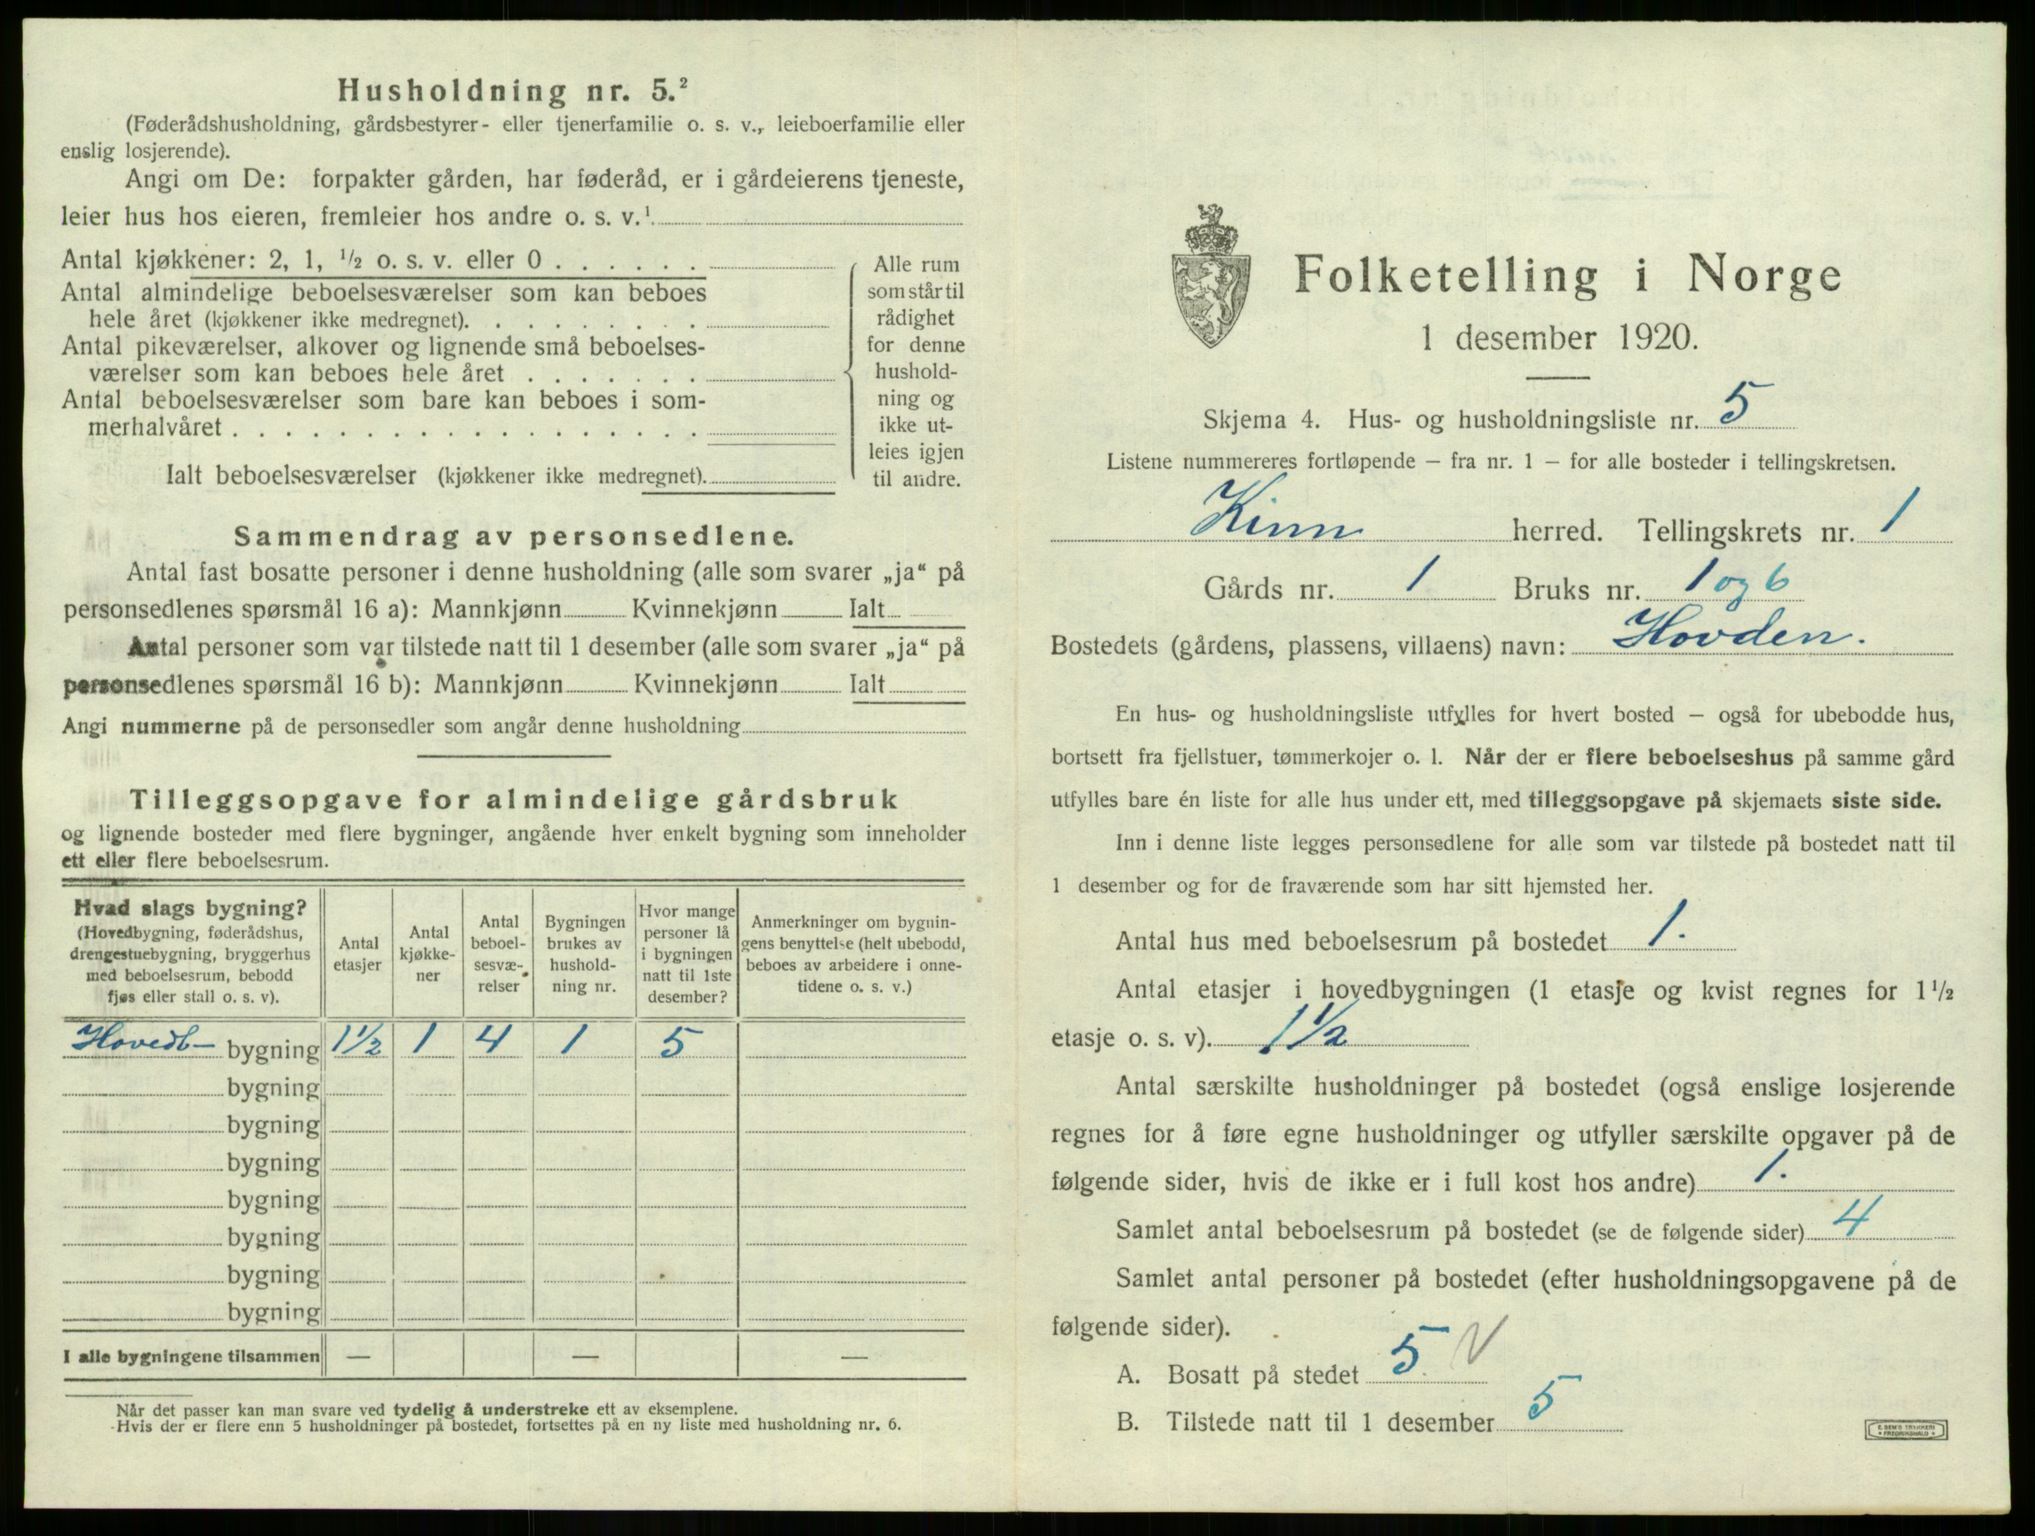 Husholdning nr. 5.²
(Føderådshusholdning, gårdsbestyrer- eller tjenerfamilie o. s. v., leieboerfamilie eller
enslig losjerende).
Angi om De: forpakter gården, har føderåd, er i gårdeierens tjeneste,
leier hus hos eieren, fremleier hos andre o. s. v.¹
Antal kjøkkener: 2, 1, ½ o. s. v. eller 0 . . . . . .
Antal almindelige beboelsesværelser som kan beboes
hele året (kjøkkener ikke medregnet). . . . . . . . .
Antal pikeværelser, alkover og lignende små beboelses-
værelser som kan beboes hele året . . . . . . .
Antal beboelsesværelser som bare kan beboes i som-
merhalvåret . . . . . . . . . . . . . . . . . .
Ialt beboelsesværelser (kjøkkener ikke medregnet).
Alle rum
som står til
rådighet
for denne
hushold-
ning og
ikke ut-
leies igjen
til andre.
Sammendrag av personsedlene.
Antal fast bosatte personer i denne husholdning (alle som svarer „ja“ på
personsedlenes spørsmål 16 a): Mannkjønn Kvinnekjønn Ialt
Antal personer som var tilstede natt til 1 desember (alle som svarer „ja“ på
personsedlenes spørsmål 16 b): Mannkjønn Kvinnekjønn Ialt
Angi nummerne på de personsedler som angår denne husholdning
Tilleggsopgave for almindelige gårdsbruk
og lignende bosteder med flere bygninger, angående hver enkelt bygning som inneholder
ett eller flere beboelsesrum.
Hvad slags bygning?
(Hovedbygning, føderådshus,
drengestuebygning, bryggerhus
med beboelsesrum, bebodd
fjøs eller stall o. s. v).
Antal
etasjer
Antal
kjøkke-
ner
Antal
beboel-
sesvæ-
relser
Bygningen
brukes av
hushold-
ning nr.
Hvor mange
personer lå
i bygningen
natt til 1ste
desember?
Anmerkninger om bygnin-
gens benyttelse (helt ubebodd,
beboes av arbeidere i onne-
tidene o. s. v.)
Hovedb- bygning 1½ 1 4 1 5
bygning
bygning
bygning
bygning
bygning
bygning
bygning
I alle bygningene tilsammen — — —
Når det passer kan man svare ved tydelig å understreke ett av eksemplene.
Hvis der er flere enn 5 husholdninger på bostedet, fortsettes på en ny liste med husholdning nr. 6.
Folketelling i Norge
1 desember 1920.
Skjema 4. Hus- og husholdningsliste nr. 5
Listene nummereres fortløpende – fra nr. 1 – for alle bosteder i tellingskretsen.
Kinn herred. Tellingskrets nr. 1
Gårds nr. 1 Bruks nr. 1 og 6
Bostedets (gårdens, plassens, villaens) navn: Hovden.
En hus- og husholdningsliste utfylles for hvert bosted – også for ubebodde hus,
bortsett fra fjellstuer, tømmerkojer o. l. Når der er flere beboelseshus på samme gård
utfylles bare én liste for alle hus under ett, med tilleggsopgave på skjemaets siste side.
Inn i denne liste legges personsedlene for alle som var tilstede på bostedet natt til
1 desember og for de fraværende som har sitt hjemsted her.
Antal hus med beboelsesrum på bostedet 1.
Antal etasjer i hovedbygningen (1 etasje og kvist regnes for 1½
etasje o. s. v). 1½
Antal særskilte husholdninger på bostedet (også enslige losjerende
regnes for å føre egne husholdninger og utfyller særskilte opgaver på de
følgende sider, hvis de ikke er i full kost hos andre) 1.
Samlet antal beboelsesrum på bostedet (se de følgende sider) 4
Samlet antal personer på bostedet (efter husholdningsopgavene på de
følgende sider).
A. Bosatt på stedet 5. V
B. Tilstede natt til 1 desember 5